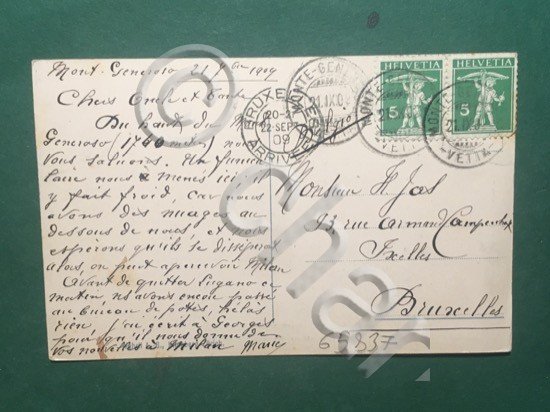 Mont-Generoso 21 7bre 1909
Chers Oncle et Tante
Du haut du Mt
Generoso 1740 mètres nous
Vous saluons. Un funicu
laire nous a menés ici il
y fait froid, car nous
avons des nuages au
dessous de nous, et nous
espérons qu'ils se dissiperont
alors, on peut apercevoir Milan
Avant de quitter Lugano ce
matin, ns avons encore passé
au bureau de postes, hélas
rien, j'ai écrit à Georges
pour qu'il nous donne de
Vos nouvelles à Milan
BRUXELLES
20-2
22 SEPT
09
ARRIVEE
MONTE-GEN
21.IX.0
HELVETIA
5
HELVETIA
5
Monsieur H. Jas
13, rue Armand Campenhout
Ixelles
Bruxelles
65837
© char